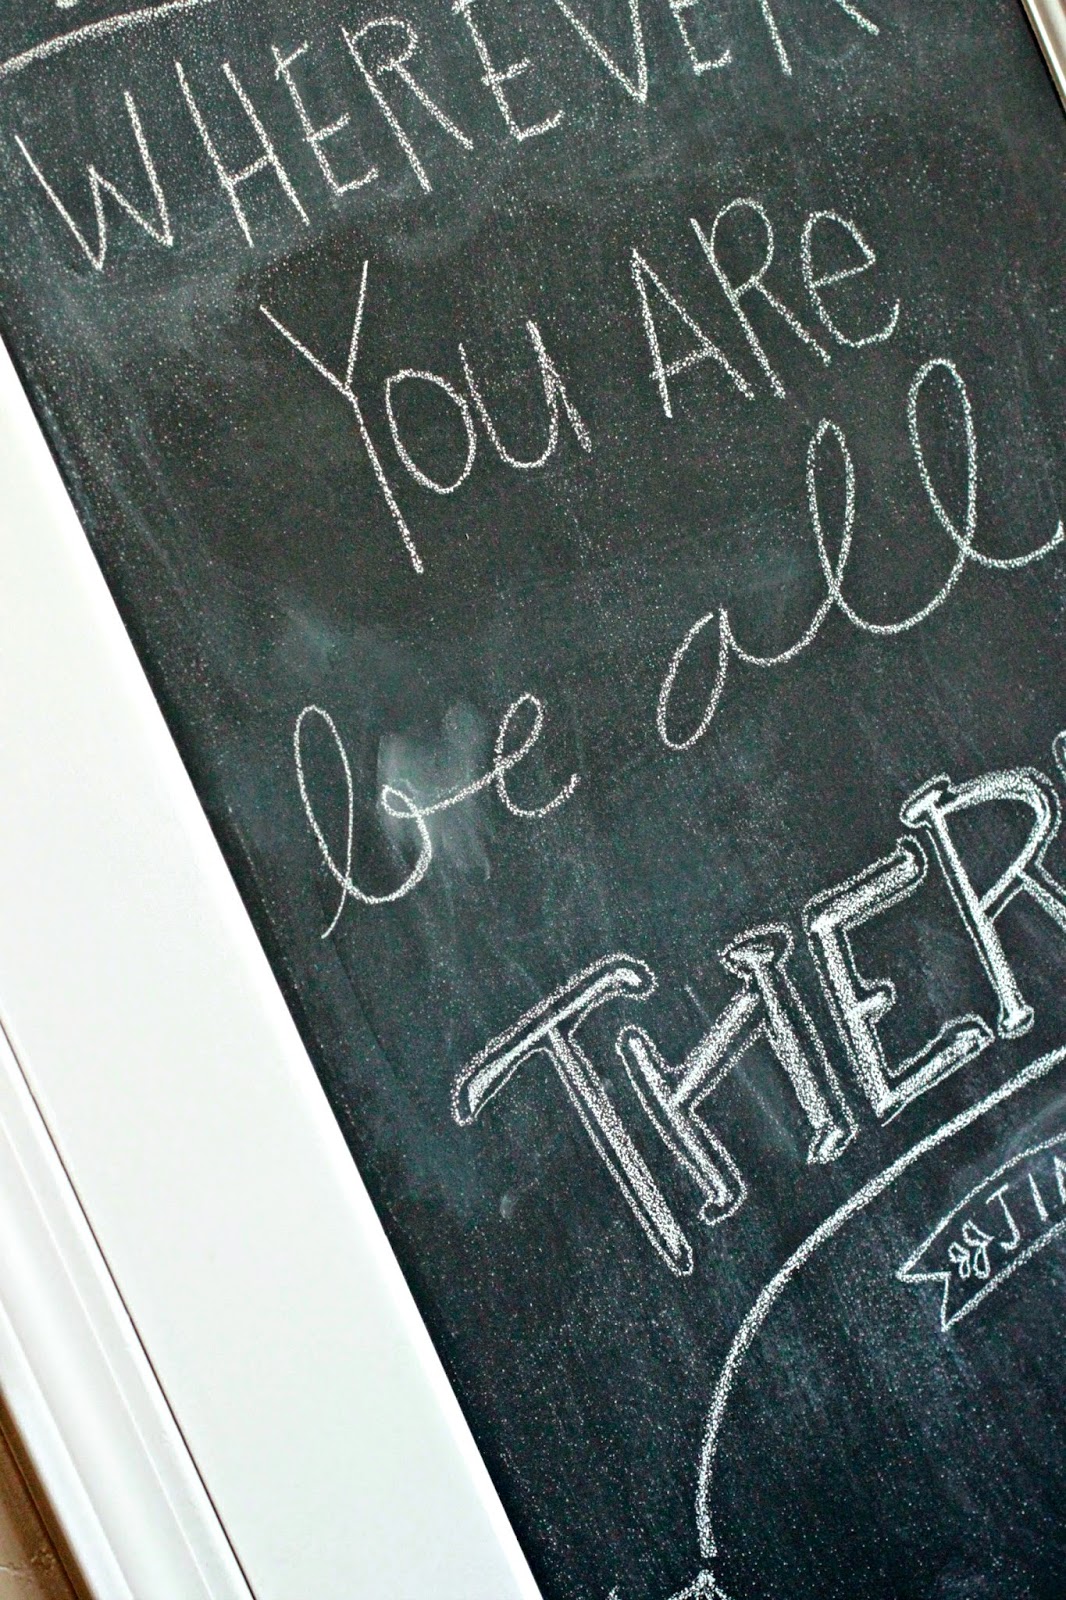 WHEREVER
YOU ARE
be all
THER
"JI